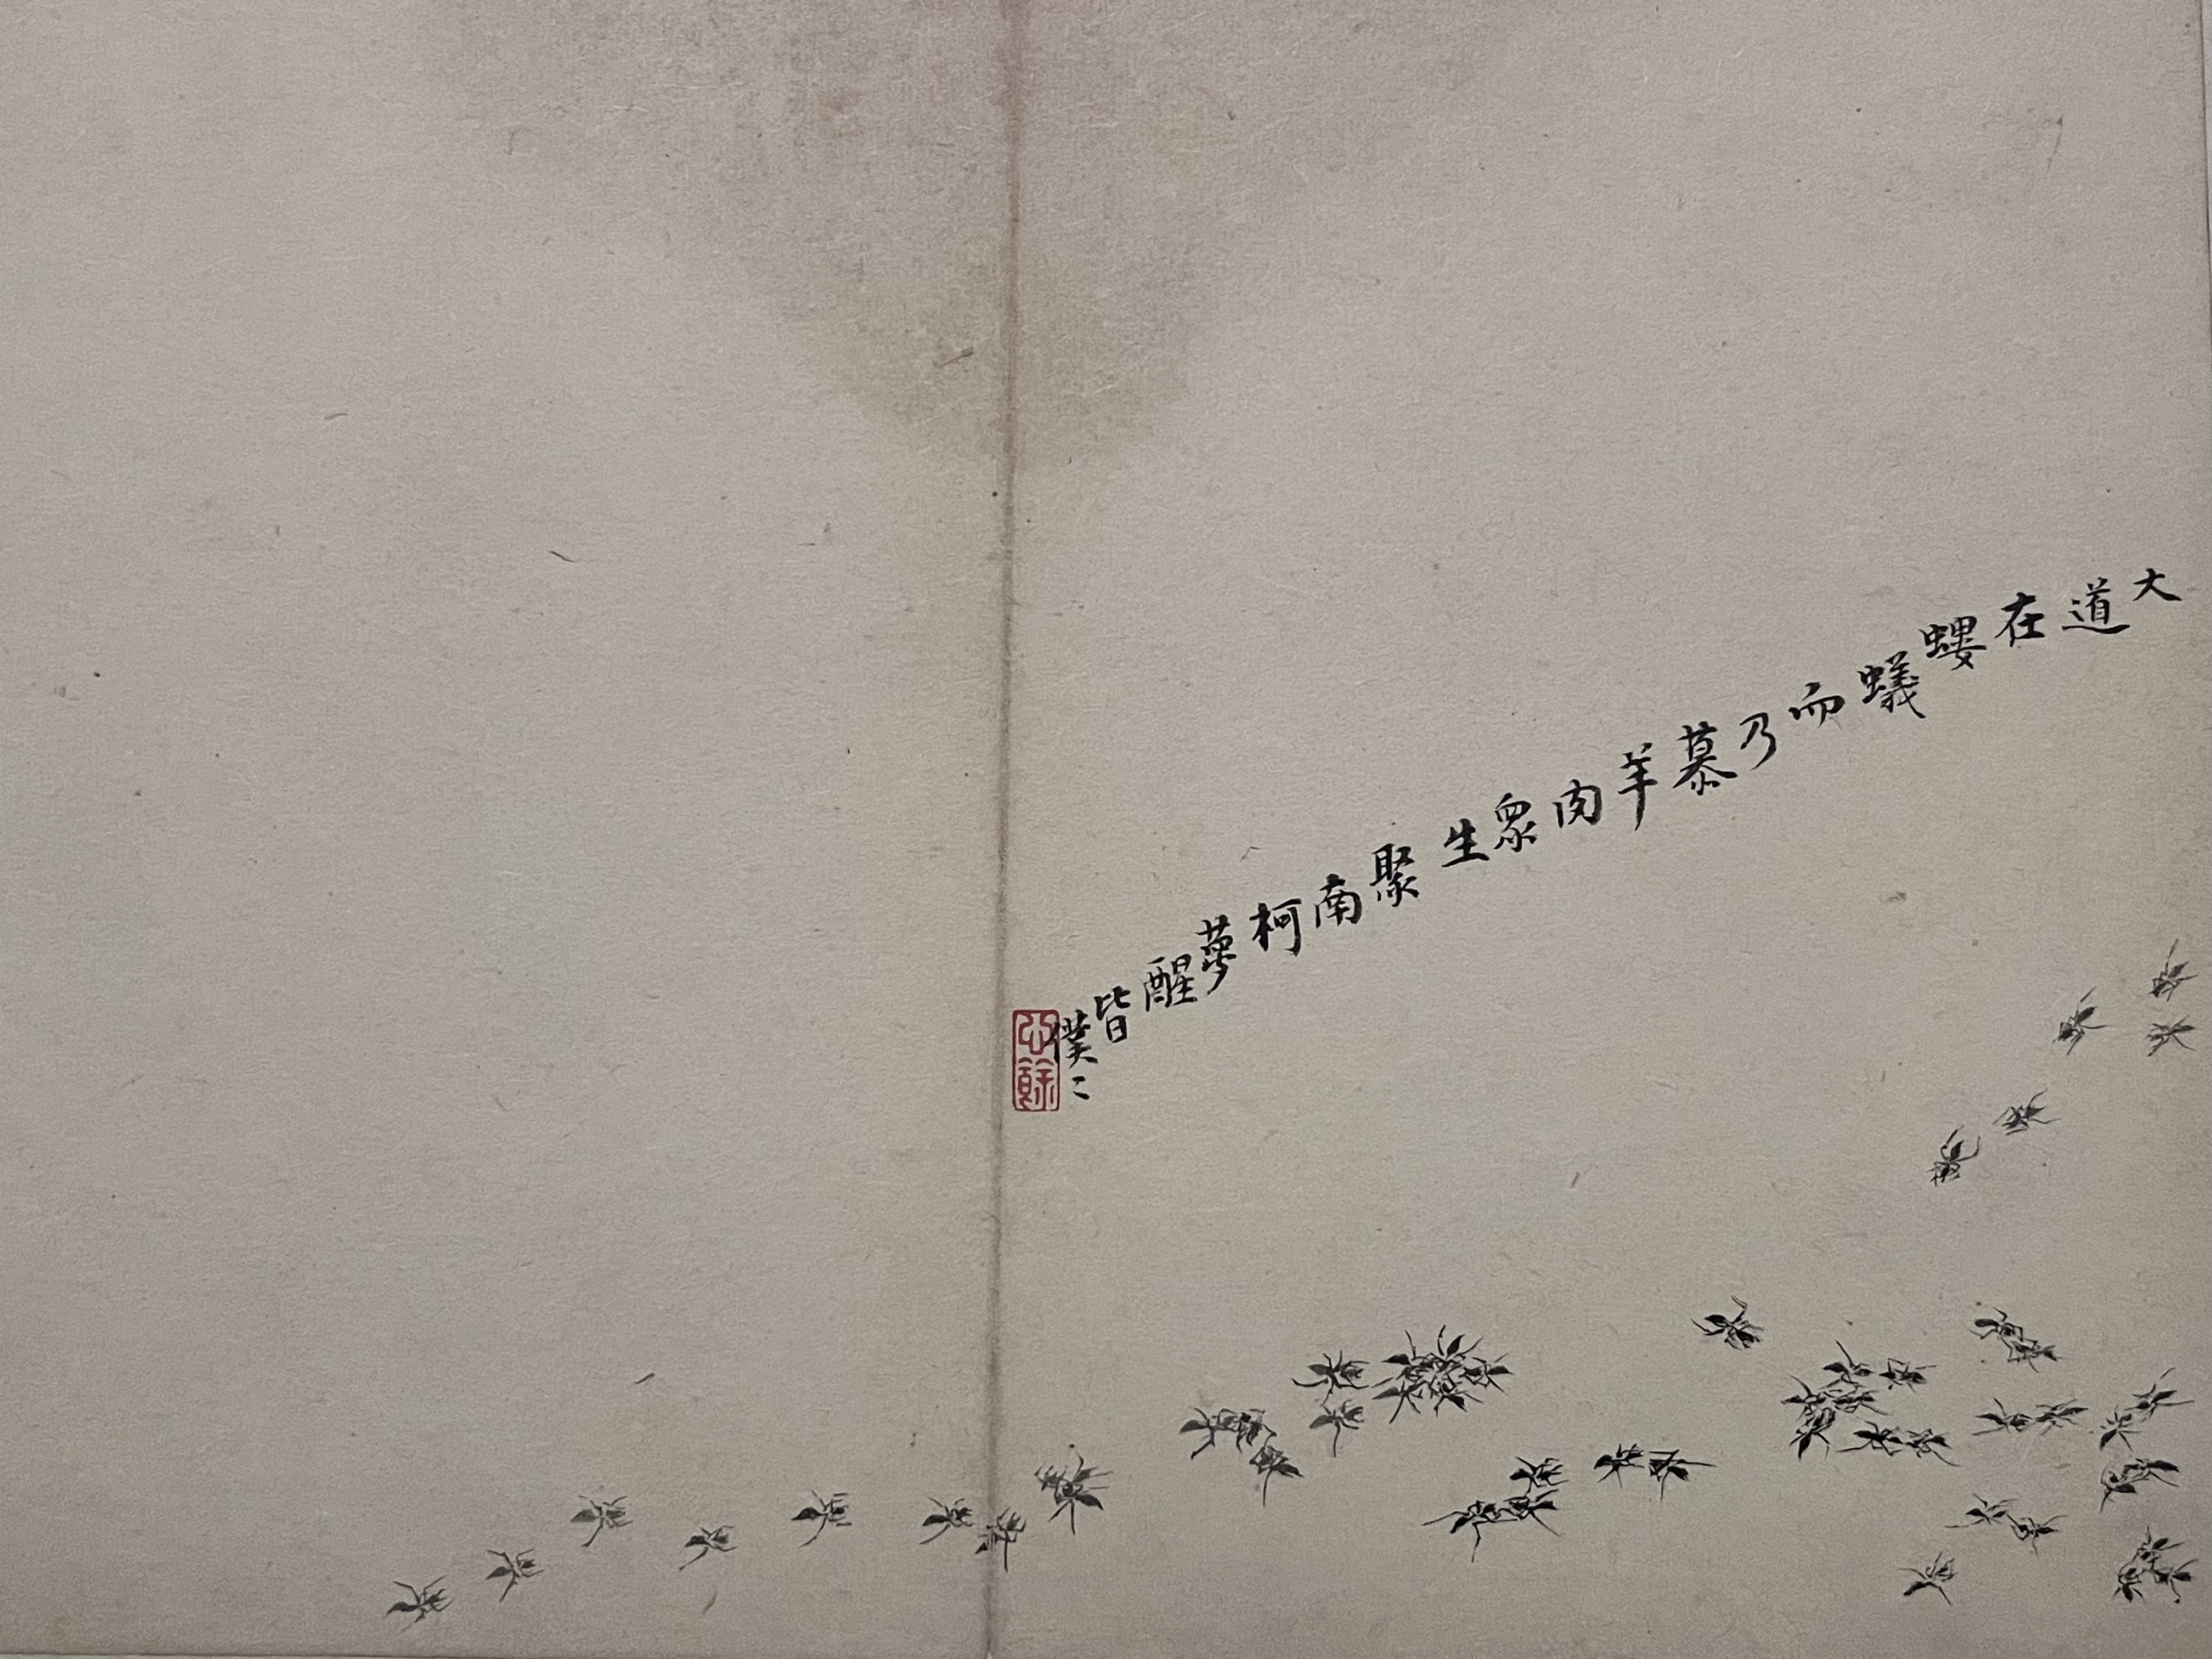 大道在螻蟻而乃慕羊肉眾生聚南柯夢醒皆僕〻
心餘